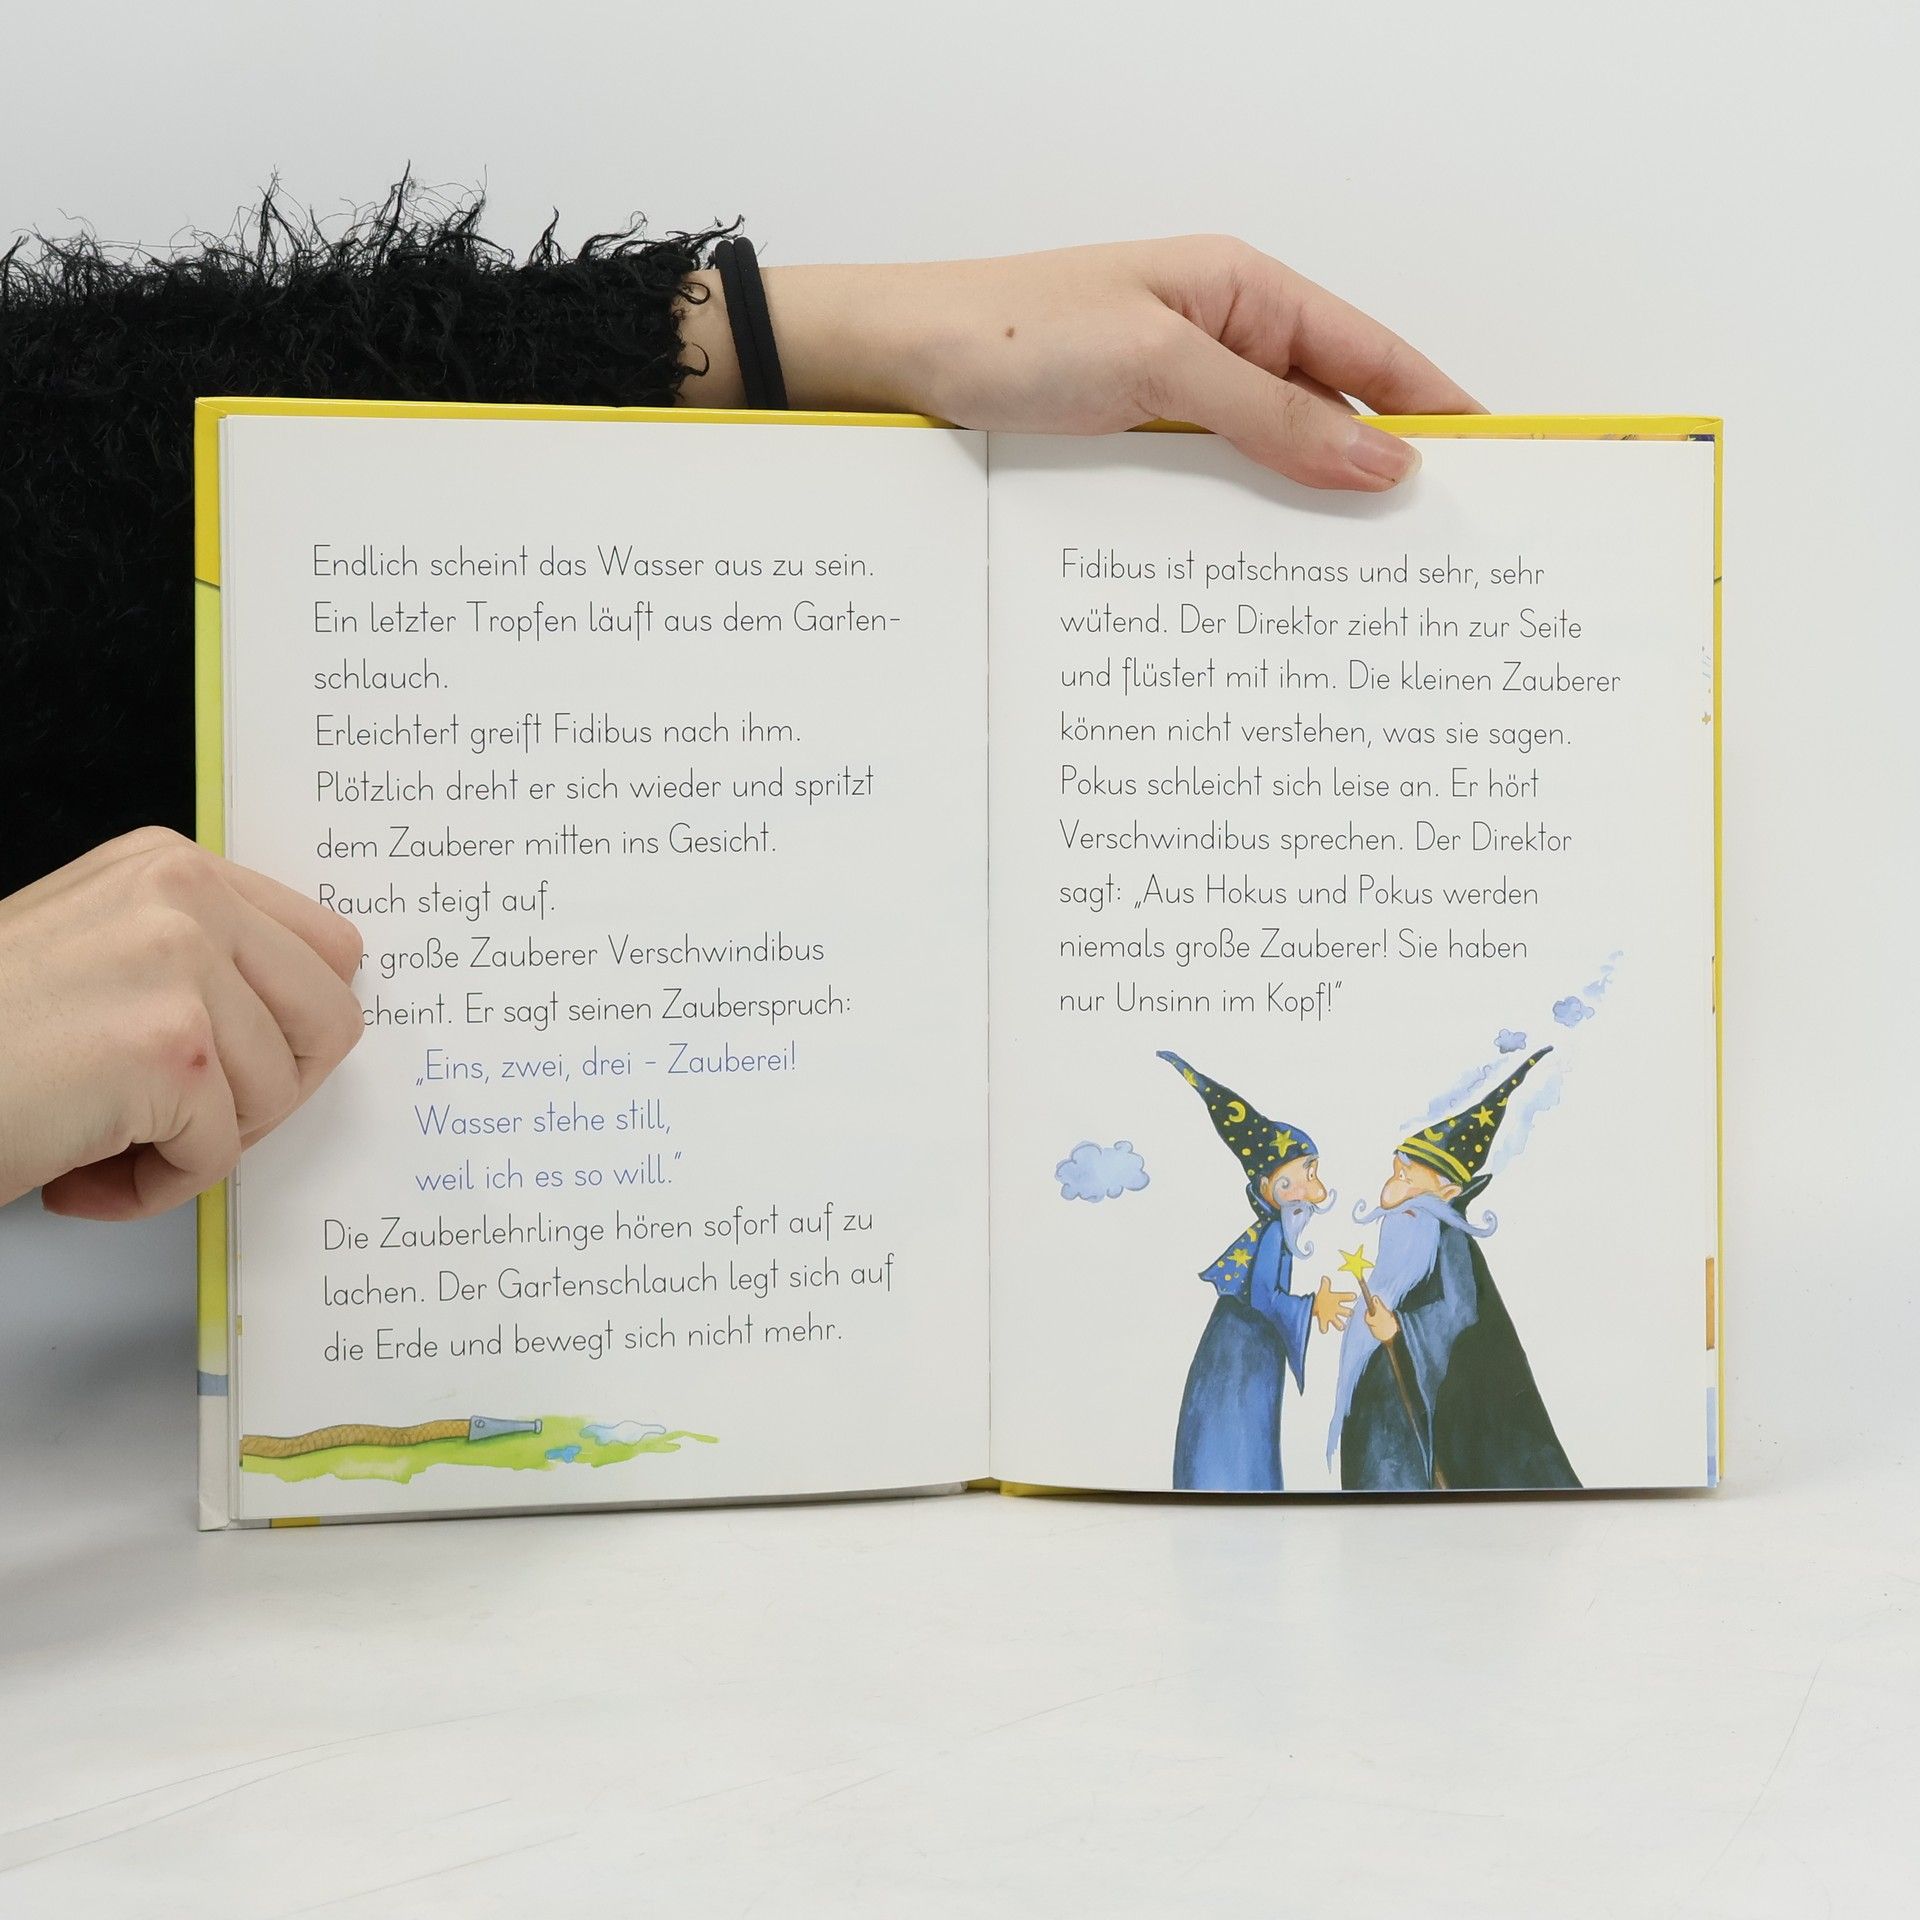 Endlich scheint das Wasser aus zu sein.
Ein letzter Tropfen läuft aus dem Garten-
schlauch.
Erleichtert greift Fidibus nach ihm.
Plötzlich dreht er sich wieder und spritzt
dem Zauberer mitten ins Gesicht.
Rauch steigt auf.
große Zauberer Verschwindibus
Er sagt seinen Zauberspruch:
„Eins, zwei, drei – Zauberei!
Wasser stehe still,
weil ich es so will.“
Die Zauberlehrlinge hören sofort auf zu
lachen. Der Gartenschlauch legt sich auf
die Erde und bewegt sich nicht mehr.
Fidibus ist patschnass und sehr, sehr
wütend. Der Direktor zieht ihn zur Seite
und flüstert mit ihm. Die kleinen Zauberer
können nicht verstehen, was sie sagen.
Pokus schleicht sich leise an. Er hört
Verschwindibus sprechen. Der Direktor
sagt: „Aus Hokus und Pokus werden
niemals große Zauberer! Sie haben
nur Unsinn im Kopf!“